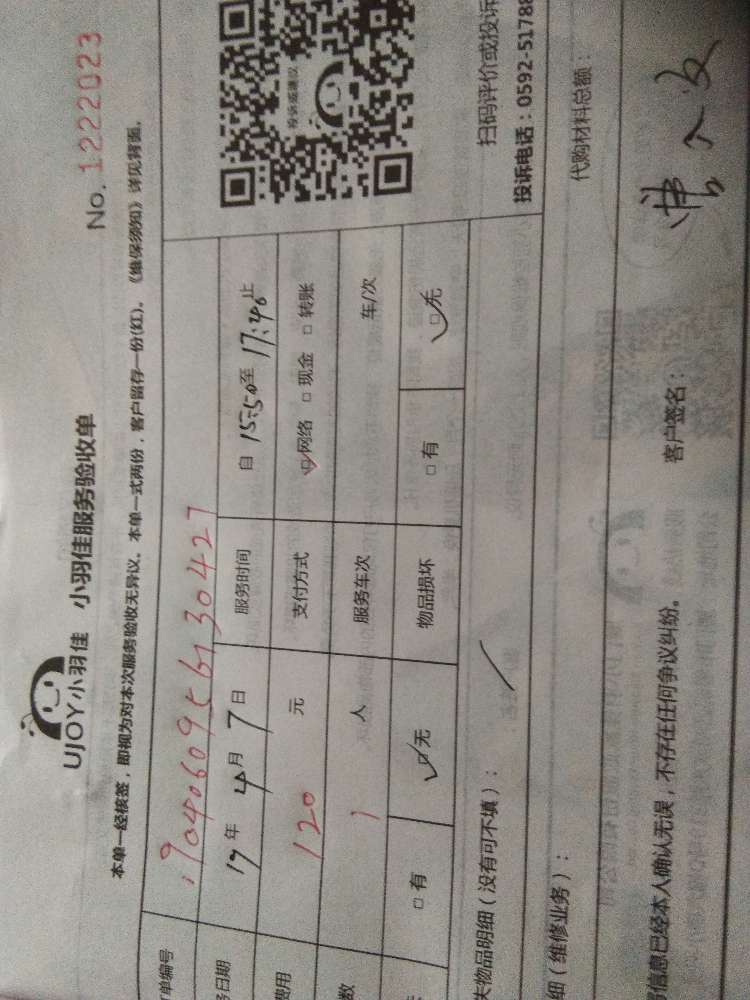 UJOY小羽佳 小羽佳服务验收单
No. 1222023
本单一经核签，即视为对本次服务验收无异议。本单一式两份，客户留存一份(红)。《维保须知》详见背面。
单编号
日期 19年 4月 7日 服务时间 自 15:50 至 17:46 止
费用 120 元 支付方式 ☑网络 □现金 □转账
数 1 人 服务车次 车/次
□有 ☑无 物品损坏 □有 ☑无
投诉或建议
失物品明细（没有可不填）：
扫码评价或投诉
投诉电话：0592-51788
细（维修业务）：
代购材料总额：
信息已经本人确认无误，不存在任何争议纠纷。 客户签名：